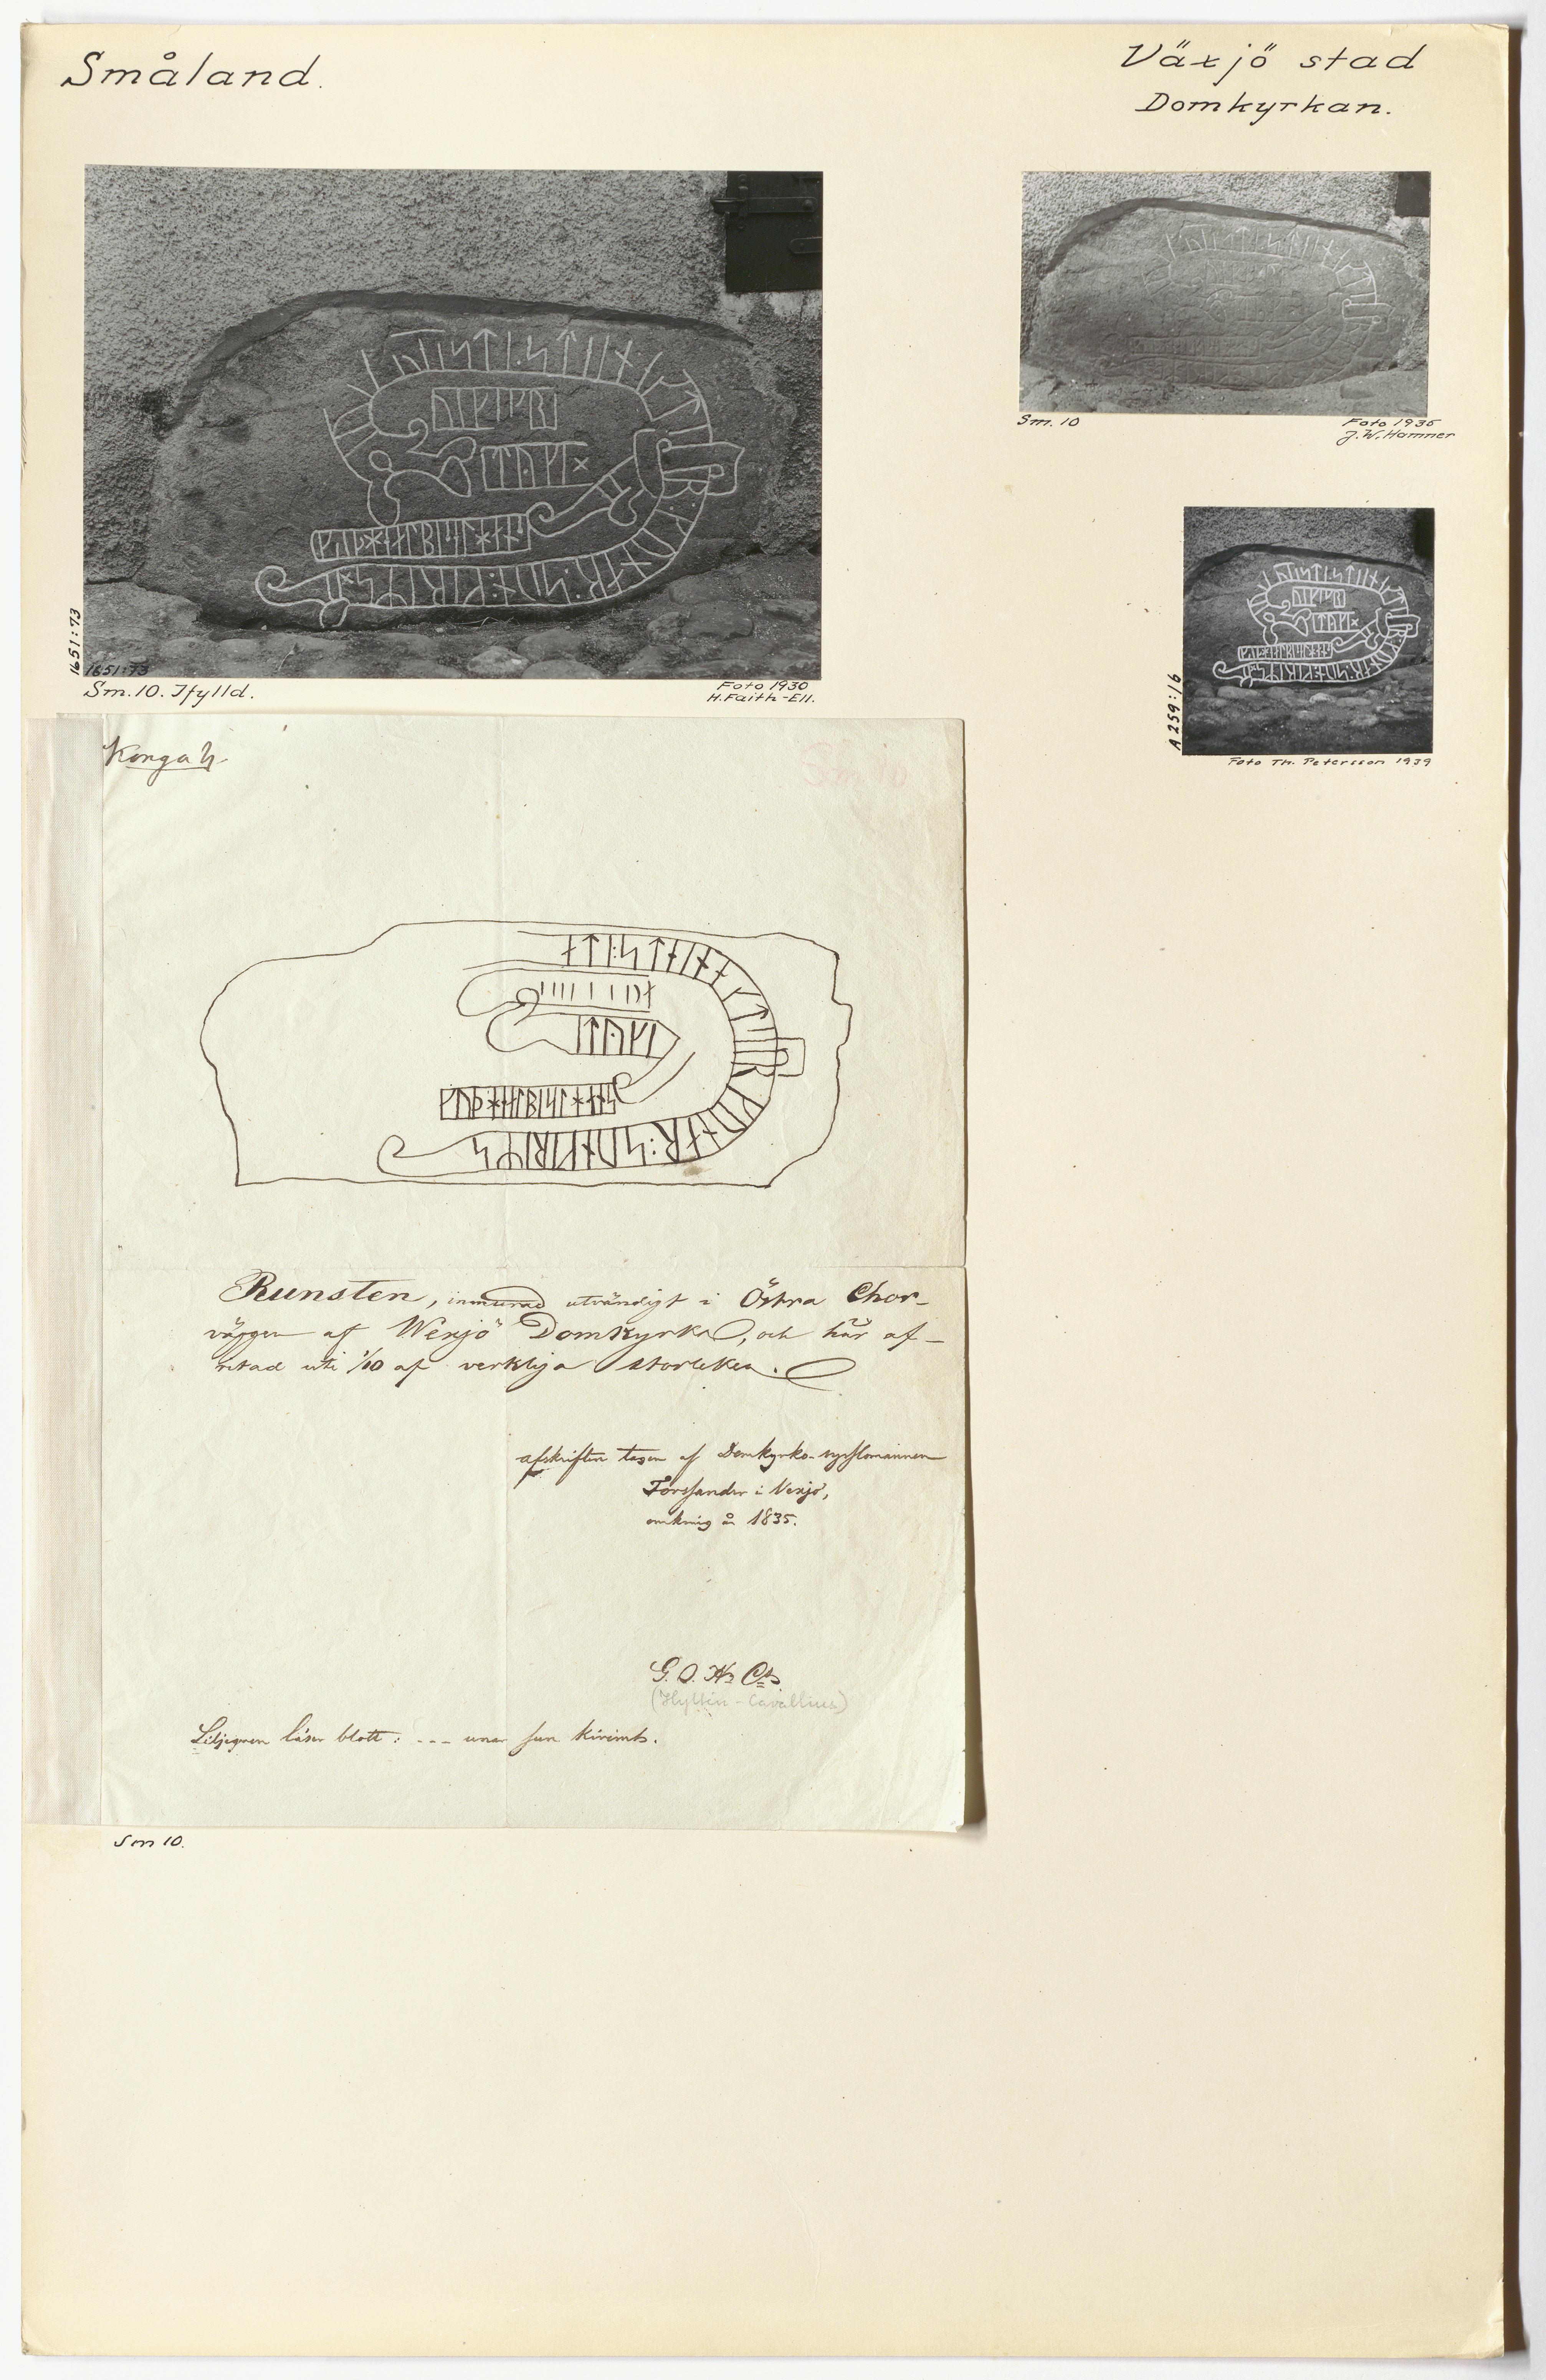 Småland.
Växjö stad
Domkyrkan.
1651:73
1651:73
Sm. 10. Ifylld.
Foto 1930
H. Faith-Ell.
Sm. 10
Foto 1935
J. W. Hamner
A 259:16
Foto Th. Petersson 1939
Konga h
Runsten, inmurad utvändigt i Östra Chor-
väggen af Wexjö Domkyrka, och här af-
ritad uti 1/10 af verkliga storleken.
afskriften tagen af Domkyrko-sysslomannen
Forssander i Vexjö,
omkring år 1835.
G. O. H= C=s.
(Hyltén-Cavallius)
Liljegren läser blott: --- unar sun kirimts.
Sm 10.